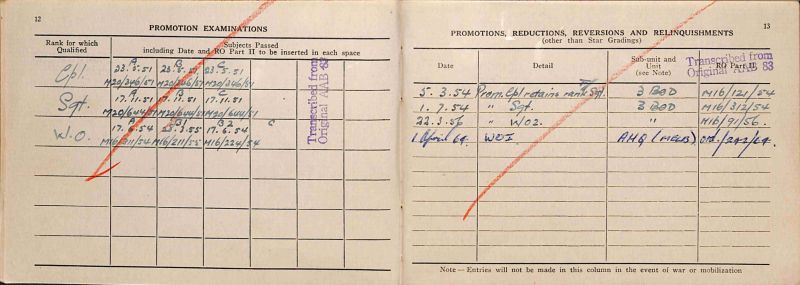 12
PROMOTION EXAMINATIONS
Rank for which Qualified
Subjects Passed
including Date and RO Part II to be inserted in each space
A B C
Cpl. 23.5.51 23.5.51 23.5.51
M20/346/51 M20/346/51 M20/346/51
A B C
Sgt. 17.11.51 17.11.51 17.11.51
M20/644/51 M20/644/51 M20/644/51
A B1 B2 C
W.O. 17.6.54 3.55 17.6.54
M16/311/54 M16/211/55 M16/224/54
Transcribed from
Original AAB 83
13
PROMOTIONS, REDUCTIONS, REVERSIONS AND RELINQUISHMENTS
(other than Star Gradings)
Date Detail Sub-unit and Unit (see Note) RO Part II
Transcribed from
Original AAB 83
5.3.54 Prom. Cpl retains rank Sgt. 3 BOD M16/121/54
1.7.54 " Sgt. 3 BOD M16/312/54
22.3.56 " WO2. " M16/91/56.
1 April 69. WOI AHQ (MELB) /69.
Note — Entries will not be made in this column in the event of war or mobilization